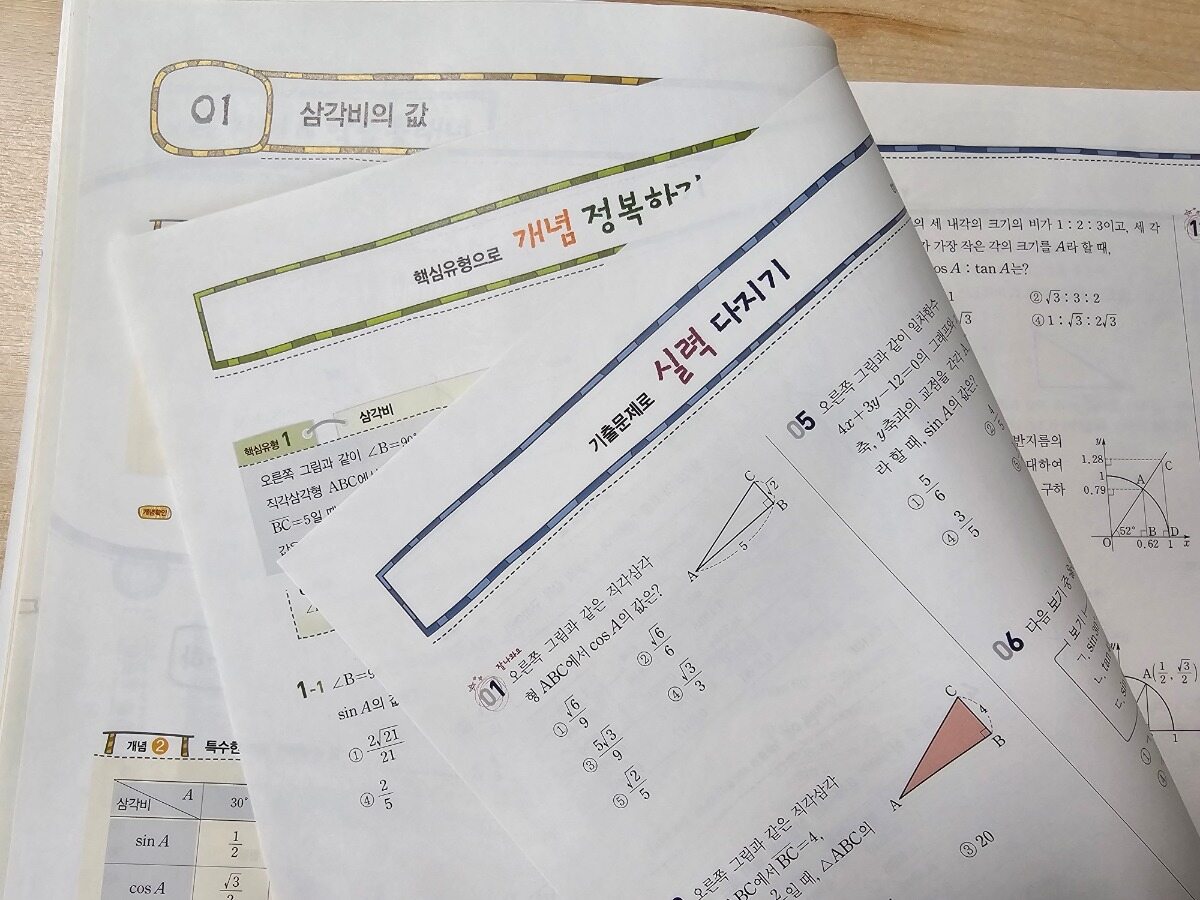 01
삼각비의 값
개념확인
개념 2 특수한
삼각비 A 30°
sin A 1/2
cos A √3/2
핵심유형으로 개념 정복하기
핵심유형 1 삼각비
오른쪽 그림과 같이 ∠B=90°
직각삼각형 ABC에서
BC=5일 때
1-1 ∠B=9
sin A의 값
① 2√21/21
④ 2/5
기출문제로 실력 다지기
잘나와요
01 오른쪽 그림과 같은 직각삼각
형 ABC에서 cos A의 값은?
① √6/9 ② √6/6
③ 5√3/9 ④ √3/3
⑤ √2/5
C √2 B
5
A
오른쪽 그림과 같은 직각삼각
ABC에서 BC=4,
일 때, △ABC의
③ 20
C 4 B
A
05 오른쪽 그림과 같이 일차함수
4x+3y-12=0의 그래프와
축, y축과의 교점을 각각
라 할 때, sin A의 값은?
① 5/6 ② 4/5
④ 3/5 ⑤
06 다음 보기 중
보기
ㄱ. sin
ㄴ. tan
ㄷ. s
①
④
의 세 내각의 크기의 비가 1 : 2 : 3이고, 세 각
가장 작은 각의 크기를 A라 할 때,
cos A : tan A는?
1 ② √3 : 3 : 2
√3 ④ 1 : √3 : 2√3
반지름의
대하여
구하
y
1.28 C
1 A
0.79
O 52° B D
0.62 1 x
A(1/2, √3/2)
1